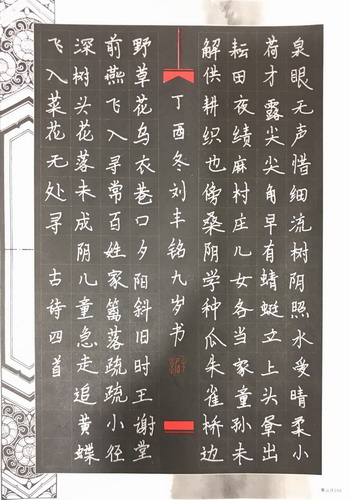 泉眼无声惜细流树阴照水爱晴柔小
荷才露尖尖角早有蜻蜓立上头昼出
耘田夜绩麻村庄儿女各当家童孙未
解供耕织也傍桑阴学种瓜朱雀桥边
丁酉冬刘丰铭九岁书
野草花乌衣巷口夕阳斜旧时王谢堂
前燕飞入寻常百姓家篱落疏疏小径
深树头花落未成阴儿童急走追黄蝶
飞入菜花无处寻 古诗四首